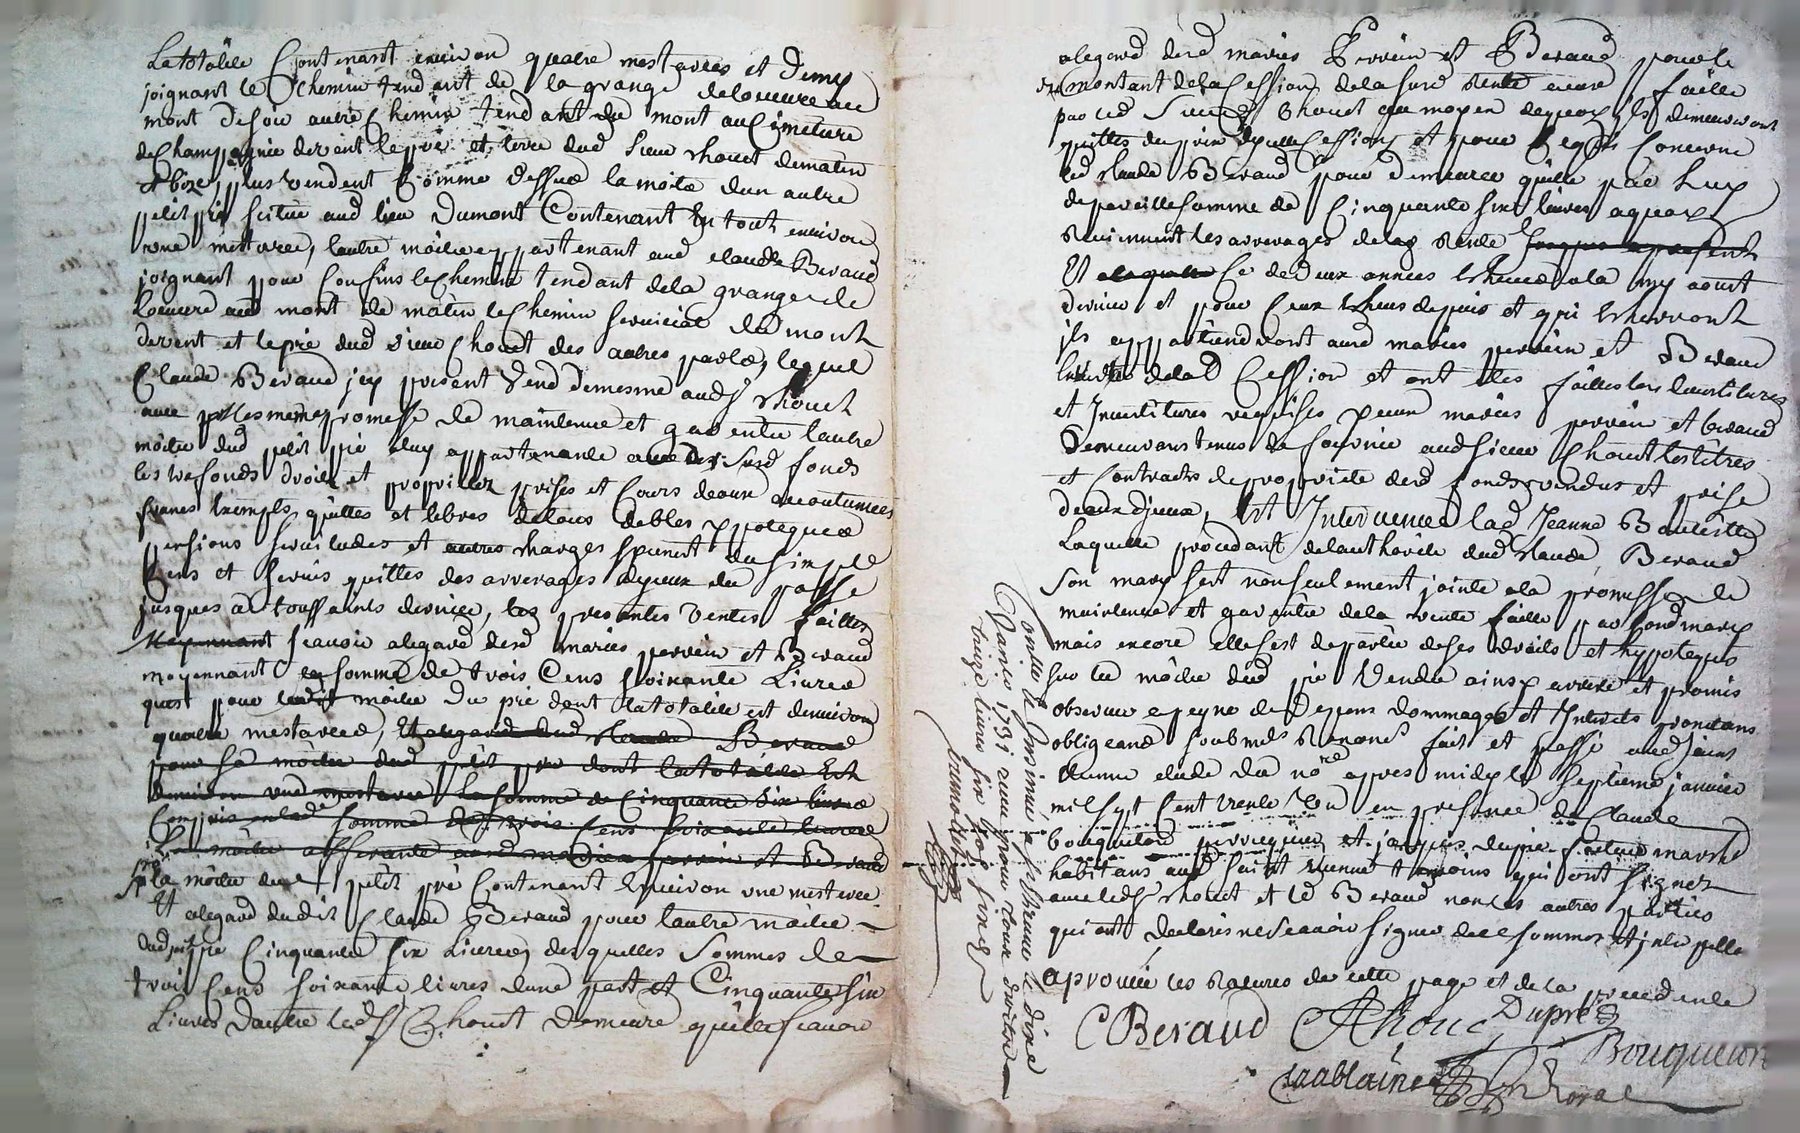 La totalité Contenant environ quatre mesterees et demy
joignant le Chemin tendant de la grange de louvre au
mont de soir autre Chemin tendant du mont au Cimetiere
de Champagnie de vent le pré et terre dud sieur Chouet de matin
et bize, plus vendent Comme dessus la moitié dun autre
petit pré scitué aud lieu Dumont Contenant En tout environ
une mesterée, lautre moitié appartenant aud claude Beraud
joignant pour Confins le Chemin tendant de la grange de
louvre aud mont de matin le Chemin servicial du mont
de vent et le pré dud sieur Chouet des autres parts, lequel
Claude Beraud icy present vend de mesme aud sr Chouet
avec les mêmes promesse de maintenue et garentie lautre
moitié dud petit pré a luy appartenante avec des susd fonds
les trefonds droits et proprietez prises et Cours deaux accoutumées
francs Exempts quittes et libres de tous debtes ypoteques
pensions servitudes et autres charges fors du simple
Cens et servis quittes des arrerages diceux du passé
jusques a la toussaints dernier, les presentes ventes faittes
moyennant scavoir alegard desd mariés perrein et Beraud
moyennant la somme de trois Cens soixante Livres
quest pour lad moitié du pré dont la totalité est denviron
quatre mesterees, Et alegard dud Claude Beraud
pour sa moitié dud petit pré dont la totalité Est
denviron une mesterée la somme de Cinquante six livres
Compris en lad somme de trois Cens soixante livres
La moitié afferante ausd mariés perrein et Beraud
la moitié dud petit pré Contenant Environ une mesterée
Et alegard dudit Claude Beraud pour lautre moitié
dud petit pré Cinquante six Livres, desquelles sommes de
trois Cens soixante livres dune part et Cinquante six
Livres dautre led sr Chouet demeure quitte scavoir
alegard desd mariés Perrein et Beraud pour le
montant de la Cession de la susd Rente faitte
par led sieur Chouet au moyen de quoy ils demeureront
quittes du prix de Cession, et pour Ce qui Concerne
led Claude Beraud pour demeurer quitte par luy
de pareille somme de Cinquante six livres a quoy
Reviennent les arrerages de lad Rente jusques a present
Et Ce de deux années Echues a la my aoust
dernier et pour Ceux Echus depuis et qui Echerront
ils appartiendront ausd mariés perrein et Beraud
de lad Cession et ont Eté faittes les devetitures
et Investitures requises pour mariés perrein et beraud
Demeurans tenus de fournir aud sieur Chouet les titres
et Contracts de proprieté desd fonds vendus et prise
deaux diceux, Est Intervenue lad Jeanne Bouteille
Laquelle procedant de lauthorité dud Claude Beraud
son mary sest non seulement jointe a la promesse de
maintenue et garentie de la vente faitte par sond mary
mais encore elle sest departie de ses droits et hypoteques
sur la moitié dud pré vendu ainsy arreté et promis
observer a peyne de Depens dommages et Interets
obligeans soubmis Renonces fait et passé aud saint
Etienne etude du nore apres midy le septieme janvier
mil sept Cent trente Un en presence de Claude
bouqueton perruquier et jacques dupré marchd
habitans aud saint Etienne temoins qui ont signez
avec led sr Chouet et led Beraud non les autres parties
qui ont declarés ne scavoir signer de ce sommés et interpellé
aprouvée les Ratures de cette page et de la precedente
CBeraud AChouet Dupré
Bouqueton
Controllé & Insinué a st Etienne le dixe
Janvier 1731 reçu pour tous droits
treize livres six sols